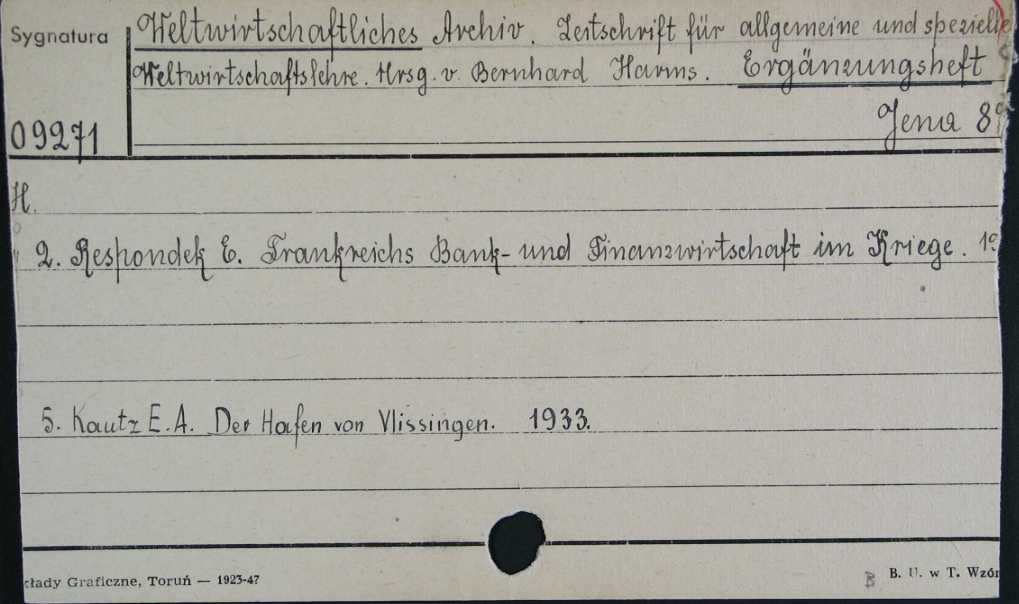 Sygnatura
Weltwirtschaftliches Archiv. Zeitschrift für allgemeine und spezielle
Weltwirtschaftslehre. Hrsg. v. Bernhard Harms. Ergänzungsheft
09271
Jena 8°
H.
2. Respondek E. Frankreichs Bank- und Finanzwirtschaft im Kriege. 19
5. Kautz E.A. Der Hafen von Vlissingen. 1933.
kłady Graficzne, Toruń — 1923-47
B. U. w T. Wzór